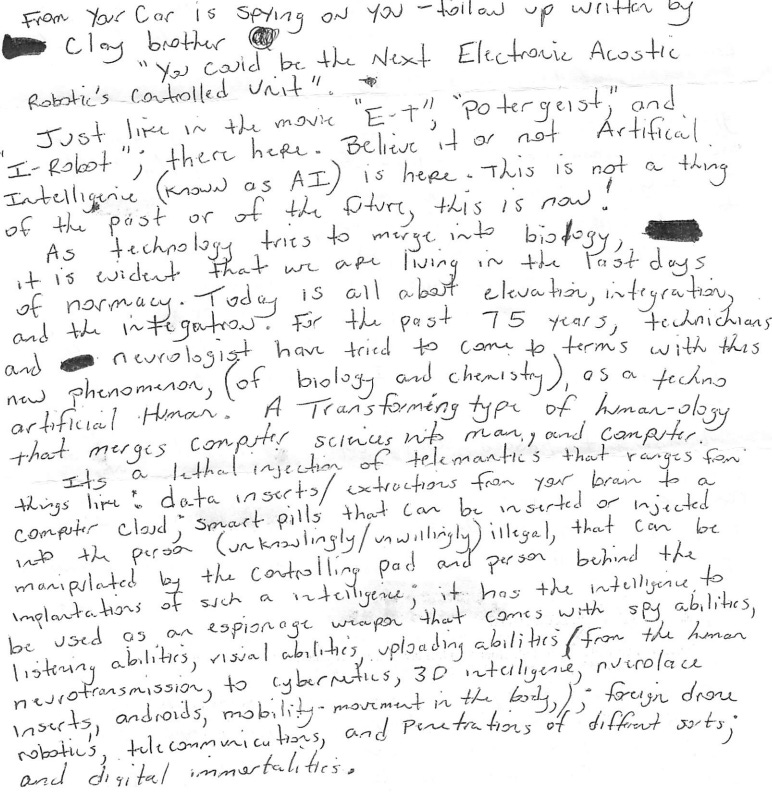 From Your Car is spying on you - follow up written by
Clay brother
"You could be the Next Electronic Acostic
Robotic's controlled Unit".
Just like in the movie "E-T", "Potergeist," and
"I-Robot"; there here. Believe it or not Artifical
Intelligenie (known as AI) is here. This is not a thing
of the past or of the future, this is now!
As technology tries to merge into biology,
it is evident that we are living in the last days
of normacy. Today is all about elevation, integration,
and the integation. For the past 75 years, technichians
and neurologist have tried to come to terms with this
new phenomenon, (of biology and chemistry), as a techno
artificial Human. A Transforming type of human-ology
that merges computer scinius into man, and computer.
Its a lethal injection of telemantics that ranges from
things like: data inserts/extractions from your brain to a
computer cloud; smart pills that can be inserted or injected
into the person (unknowlingly/unwillingly) illegal, that can be
manipulated by the controlling pad and person behind the
implantations of such a intelligenie; it has the intelligenie to
be used as an espionage weapon that comes with spy abilities,
listening abilities, visual abilities, uploading abilities (from the human
neurotransmission, to cybernetics, 3D intelligenie, nuerolace
inserts, androids, mobility-movement in the body,); foreign drone
robotics, telecommunications, and penetrations of different sorts;
and digital immortalitics.